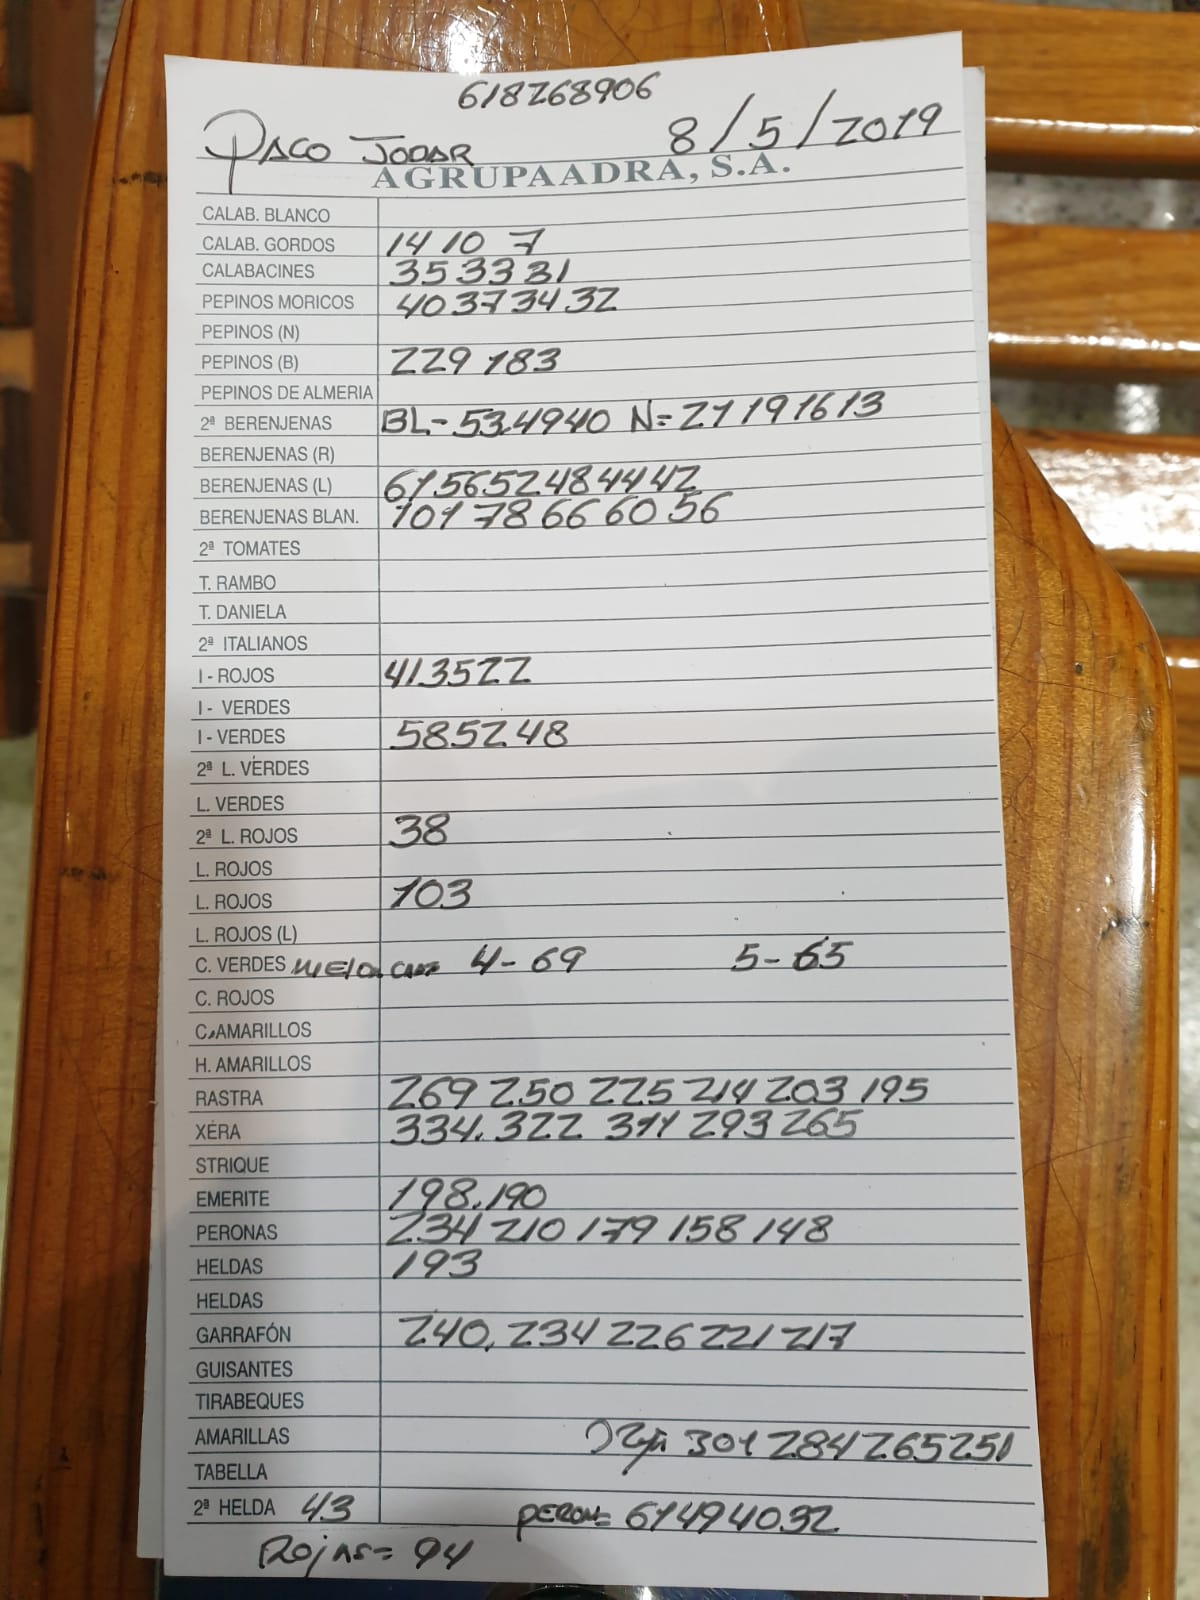 618268906
PACO JODAR 8/5/2019
AGRUPAADRA, S.A.
CALAB. BLANCO
CALAB. GORDOS 14 10 7
CALABACINES 35 33 31
PEPINOS MORICOS 40 37 34 32
PEPINOS (N)
PEPINOS (B) 229 183
PEPINOS DE ALMERIA
2ª BERENJENAS BL-53.49 40 N=21 19 16 13
BERENJENAS (R)
BERENJENAS (L) 61 56 52 48 44 42
BERENJENAS BLAN. 101 78 66 60 56
2ª TOMATES
T. RAMBO
T. DANIELA
2ª ITALIANOS
I - ROJOS 41.35 22
I - VERDES
I - VERDES 58.52.48
2ª L. VERDES
L. VERDES
2ª L. ROJOS 38
L. ROJOS
L. ROJOS 103
L. ROJOS (L)
C. VERDES 4-69 5-65
C. ROJOS
C. AMARILLOS
H. AMARILLOS
RASTRA 269 250 225 214 203 195
XÉRA 334. 322 311 293 265
STRIQUE
EMERITE 198.190
PERONAS 234 210 179 158 148
HELDAS 193
HELDAS
GARRAFÓN 240. 234 226 221 217
GUISANTES
TIRABEQUES
AMARILLAS 301 284 265 251
TABELLA
2ª HELDA 43 PERON= 61 49 40 32
Rojas= 94